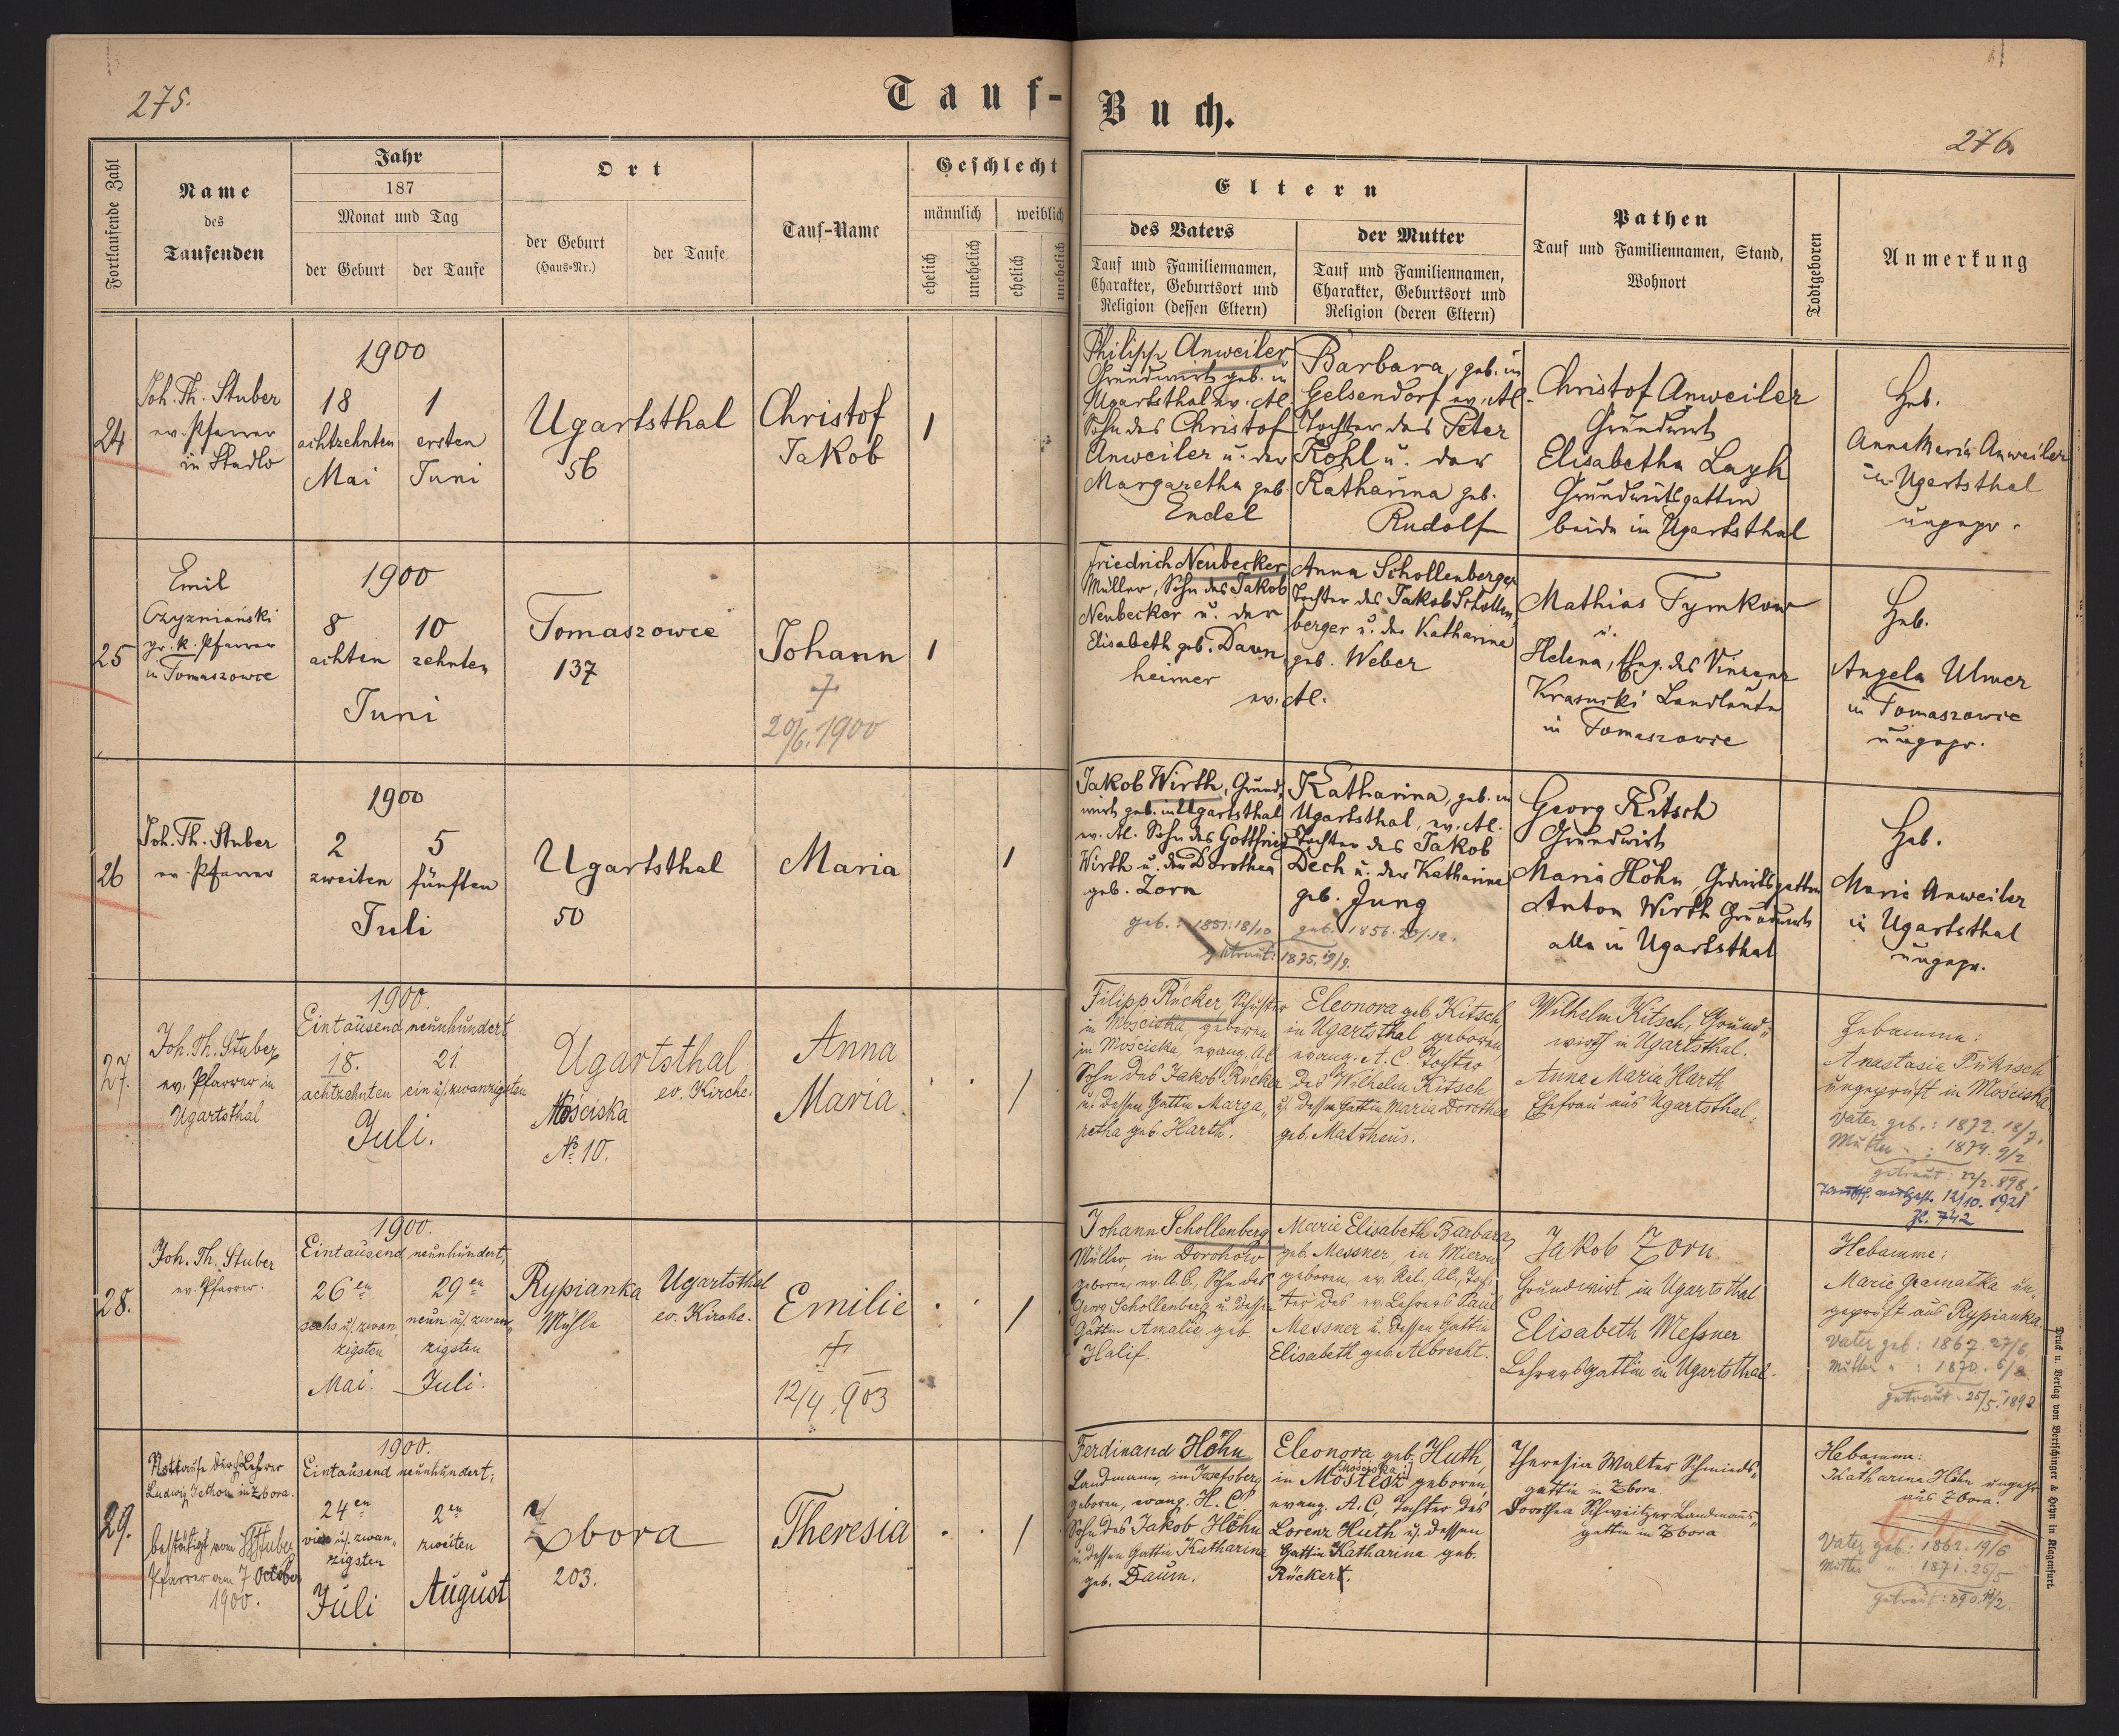 275.
Tauf-
Buch.
276.
Fortlaufende Zahl
Name
des
Taufenden
Jahr
187
Monat und Tag
der Geburt
der Taufe
Ort
der Geburt
(Haus-Nr.)
der Taufe
Tauf-Name
Geschlecht
männlich
weiblich
ehelich
unehelich
ehelich
unehelich
Eltern
des Vaters
Tauf und Familiennamen,
Charakter, Geburtsort und
Religion (dessen Eltern)
der Mutter
Tauf und Familiennamen,
Charakter, Geburtsort und
Religion (deren Eltern)
Pathen
Tauf und Familiennamen, Stand,
Wohnort
Todtgeboren
Anmerkung
24
Joh. Th. Stuber
ev. Pfarrer
in Stadlo
1900
18
achtzehnten
Mai
1
ersten
Juni
Ugartsthal
56
Christof
Jakob
1
Philipp Anweiler
Grundwirth geb. in
Ugartsthal ev. Al.
Sohn des Christof
Anweiler u. der
Margaretha geb.
Endel
Barbara, geb. in
Gelsendorf ev. Al.
Tochter des Peter
Kohl u. der
Katharina geb.
Rudolf
Christof Anweiler
Grundwirt
Elisabetha Layh
Grundwirtsgattin
beide in Ugartsthal
Heb.
Anna Maria Anweiler
in Ugartsthal
ungepr.
25
Emil
Czyzniański
gr. k. Pfarrer
in Tomaszowce
1900
8
achten
10
zehnten
Juni
Tomaszowce
137
Johann
†
20/6. 1900
1
Friedrich Neubecker
Müller, Sohn des Jakob
Neubecker u. der
Elisabeth geb. Dawn
heimer
ev. Al.
Anna Schollenberger
Tochter des Jakob Schollen
berger u. der Katharina
geb. Weber
Mathias Tymkow
u.
Helena, Eheg. des Vinzenz
Krasucki Landleute
in Tomaszowce
Heb.
Angela Ulmer
in Tomaszowce
ungepr.
26
Joh. Th. Stuber
ev. Pfarrer
1900
2
zweiten
5
fünften
Juli
Ugartsthal
50
Maria
1
Jakob Wirth, Grund,
wirt geb. in Ugartsthal
ev. Al. Sohn des Gottfried
Wirth u. der Dorothea
geb. Zorn
geb.: 1851. 18/10
Katharina, geb. in
Ugartsthal, ev. Al.
Tochter des Jakob
Dech u. der Katharina
geb. Jung
geb. 1856.
getraut: 1875. 19/9.
Georg Kitsch
Grundwirt
Maria Höhn, Grdwirtsgattin
Anton Wirth Grundwirt
alle in Ugartsthal
Heb.
Marie Anweiler
in Ugartsthal
ungepr.
27.
Joh. Th. Stuber
ev. Pfarrer in
Ugartsthal
1900.
Eintausend neunhundert
18.
achtzehnten
21.
ein u. zwanzigsten
Juli.
Ugartsthal
ev. Kirche.
Mościska
No 10.
Anna
Maria.
1
Filipp Rücker, Schuster
in Mościska geboren
in Mościska, evang. A.C.
Sohn des Jakob Rücker
u. dessen Gattin Marga,,
retha geb. Harth.
Eleonora geb. Kitsch,
in Ugartsthal geboren
evang. A. C. Tochter
des Wilhelm Kitsch
u. dessen Gattin Maria Dorothea
geb. Mattheus.
Wilhelm Kitsch, Grund,,
wirth in Ugartsthal.
Anna Maria Harth
Ehefrau aus Ugartsthal.
Hebamme:
Anastasia
ungeprüft in Mościska
Vater geb.: 1872. 18/7.
Mutter " : 1874. 9/2
getraut: 22/2. 898.
Taufsch. ausgest. 12/10. 1921
Zl. 742
28.
Joh. Th. Stuber
ev. Pfarrer.
1900.
Eintausend neunhundert,
26en
sechs u. zwan,
zigsten
Mai.
29en
neun u. zwan,,
zigsten
Juli.
Rypianka
Mühle
Ugartsthal
ev. Kirche.
Emilie
†
12/4. 903
1
Johann Schollenberg
Müller, in Dorohów
geboren, ev. A.C., Sohn des
Georg Schollenberg u. dessen
Gattin Amalie, geb.
Halif.
Marie Elisabeth Barbara,
geb. Messner, in Mierow
geboren, ev. Rel. Al., Toch,
ter des ev. Lehrers Paul
Messner u. dessen Gattin
Elisabeth geb. Albrecht.
Jakob Zorn
Grundwirt in Ugartsthal
Elisabeth Meßner
Lehrersgattin in Ugartsthal.
Hebamme:
Marie Gramatka un,,
geprüft aus Rypianka.
Vater geb: 1867. 27/6.
Mutter " : 1870. 6/8
getraut. 25/5. 1892
29.
Nottaufe durch Lehrer
Ludwig Jethon in Zbora.
bestätigt vom Stuber
Pfarrer am 7 October
1900.
1900.
Eintausend neunhundert;
24en
vier u. zwan,,
zigsten
Juli
2en
zweiten
August
Zbora
203.
Theresia
1
Ferdinand Höhn
Landmann, in Josefsberg
geboren, evang. H. C.
Sohn des Jakob Höhn
u. dessen Gattin Katharina
geb. Daum.
Eleonora geb. Huth,
(Mościska)
in Mostesz geboren,
evang. A. C., Tochter des
Lorenz Huth u. dessen
Gattin Katharina geb.
Rückert.
Theresia Walter Schmieds,,
gattin in Zbora
Dorothea Schweitzer Landmanns,,
gattin in Zbora
Hebamme:
Katharina Höhn ungepr
aus Zbora.
Vater geb.: 1862. 19/6
Mutter " : 1871. 25/5
getraut: 890. 11/2.
Druck u. Verlag von Bertschinger & Heyn in Klagenfurt.